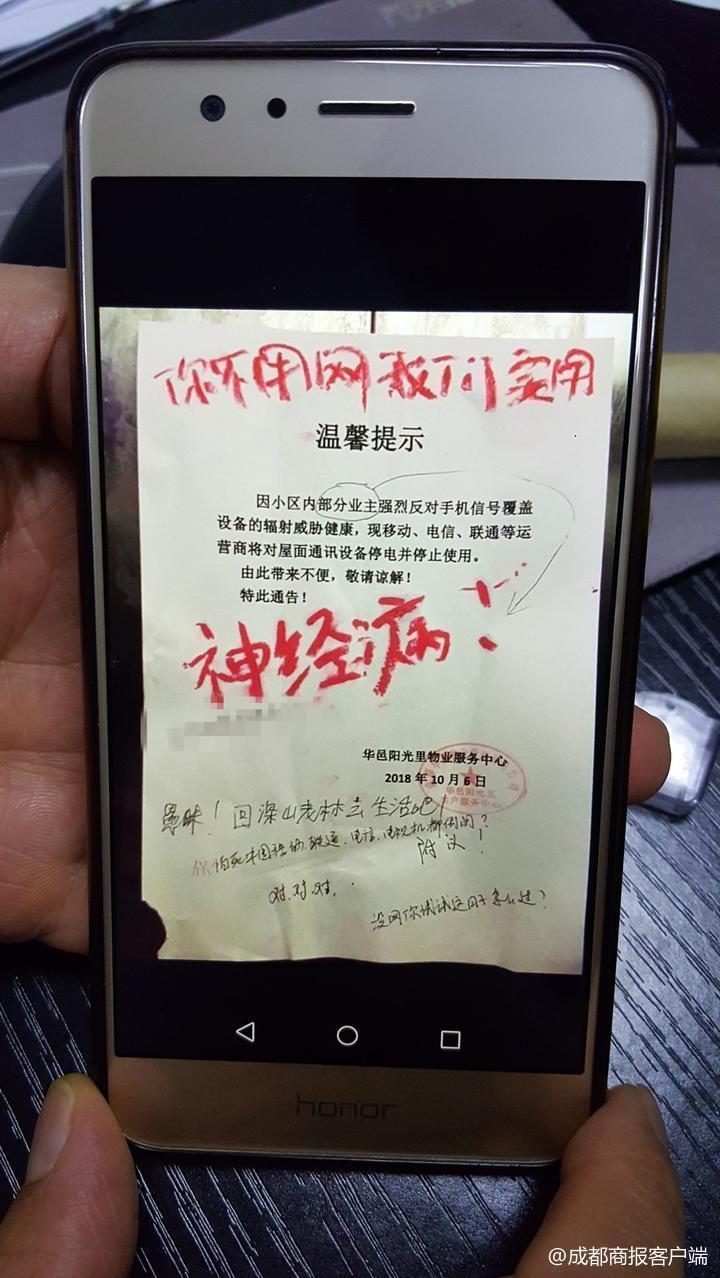 你不用网我们要用
温馨提示
因小区内部分业主强烈反对手机信号覆盖
设备的辐射威胁健康，现移动、电信、联通等运
营商将对屋面通讯设备停电并停止使用。
由此带来不便，敬请谅解！
特此通告！
神经病！
华邑阳光里物业服务中心
2018年10月6日
华邑阳光里
客户服务中心
愚昧！回深山老林去生活吧！
你怕死中国移动、联通、电信、电视机都倒闭？
附议！
对.对.对.
没网你试试这日子怎么过？
honor
@成都商报客户端